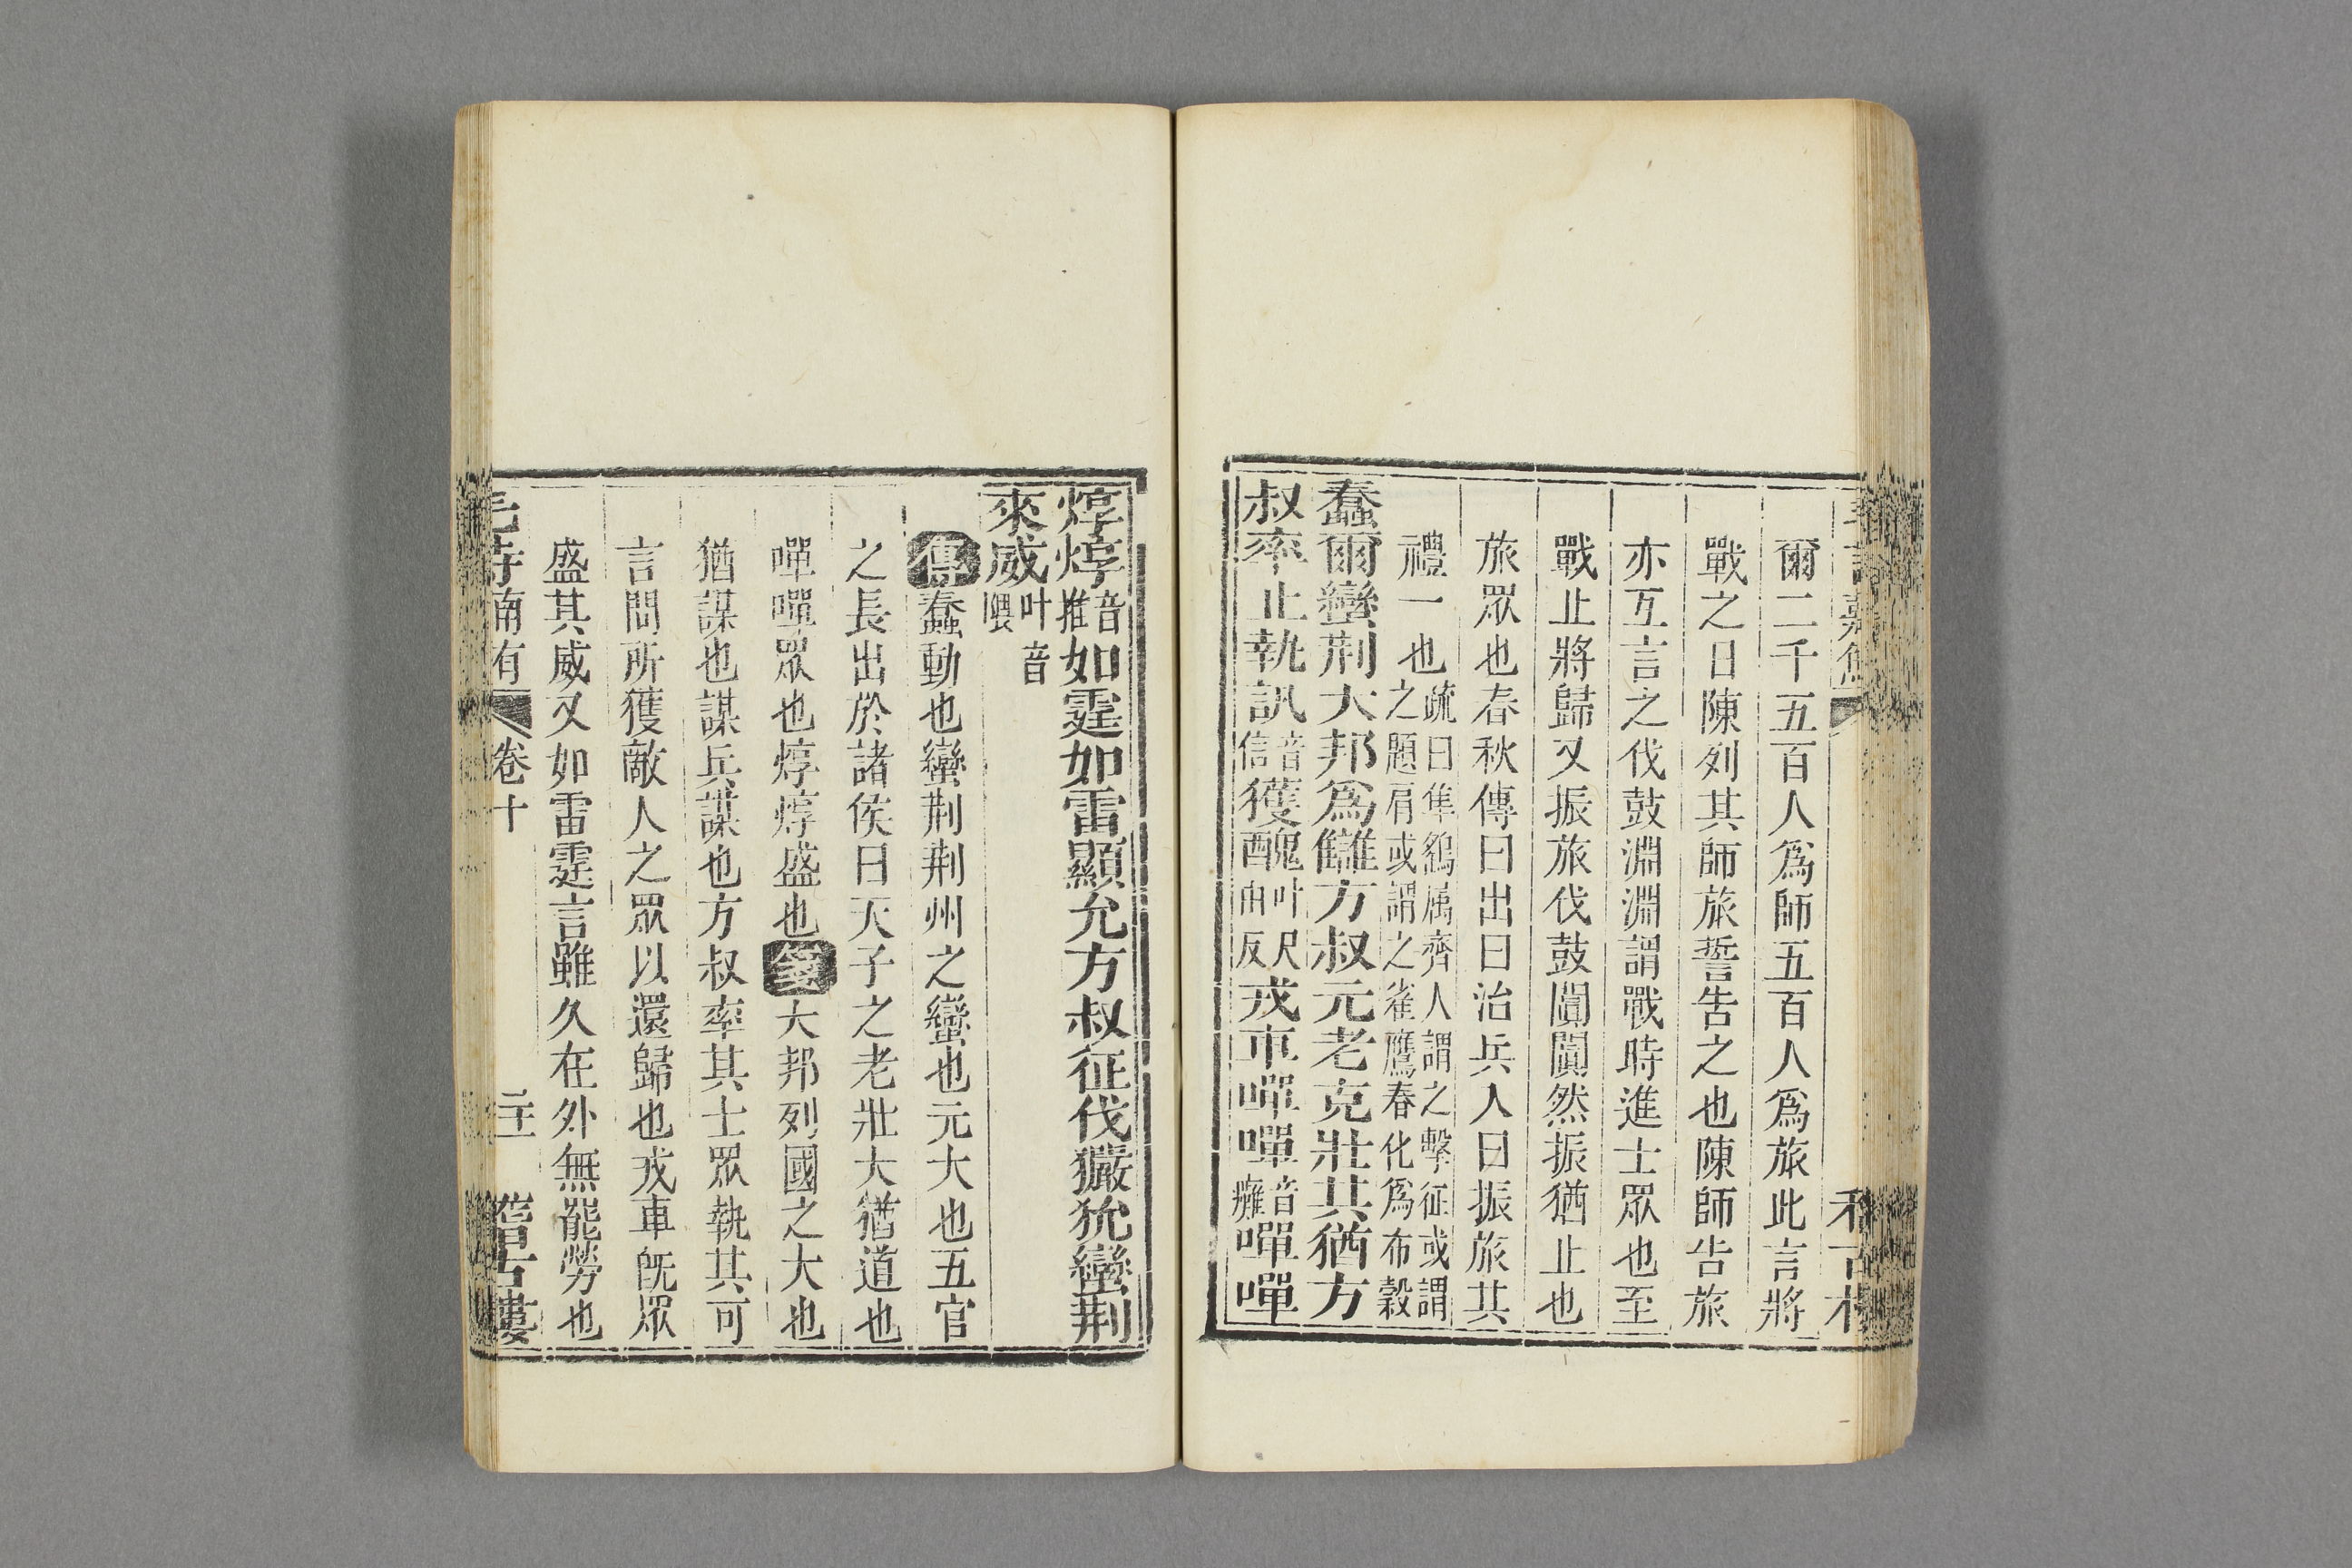 爾二千五百人爲師五百人爲旅此言將
戰之日陳列其師旅誓告之也陳師告旅
亦互言之伐鼓淵淵謂戰時進士眾也至
戰止將歸又振旅伐鼓闐闐然振猶止也
旅眾也春秋傳曰出曰治兵入曰振旅其
禮一也疏曰隼鷂属齊人謂之擊征或謂
之題肩或謂之雀鷹春化爲布穀
蠢爾蠻荆大邦爲讎方叔元老克壯其猶方
叔率止執訊音信獲醜叶尺由反戎車嘽嘽音癱嘽嘽
焞焞音推如霆如雷顯允方叔征伐玁狁蠻荆
來威叶音隈
傳蠢動也蠻荆荆州之蠻也元大也五官
之長出於諸侯曰天子之老壯大猶道也
嘽嘽眾也焞焞盛也箋大邦列國之大也
猶謀也謀兵謀也方叔率其士眾執其可
言問所獲敵人之眾以還歸也戎車既眾
盛其威又如雷霆言雖久在外無罷勞也
毛詩南有 卷十 二十一 稽古樓